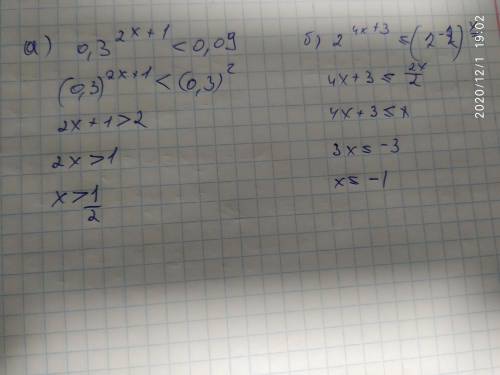 а) 0,3^{2x+1} < 0,09
(0,3)^{2x+1} < (0,3)^2
2x+1>2
2x>1
x>\frac{1}{2}
б) 2^{4x+3} ≤
4x+3 ≤ \frac{2x}{2}
4x+3 ≤ x
3x ≤ -3
x ≤ -1
2020/12/1 19:03